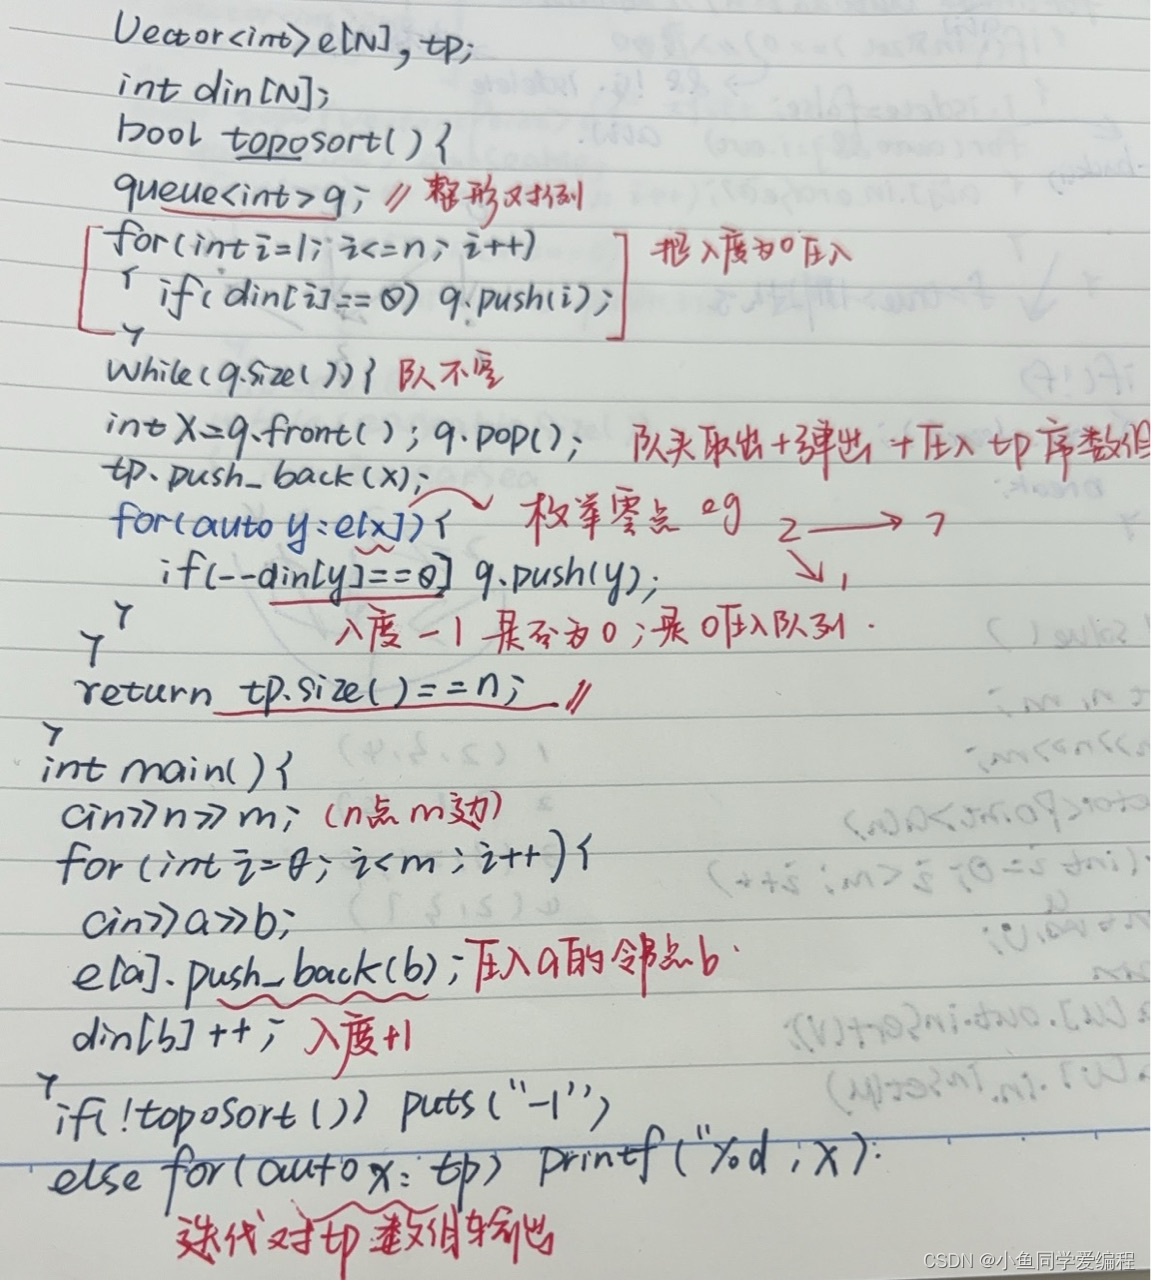 Vector<int>e[N],tp;
int din[N];
bool toposort(){
queue<int>q; // 整形对列
for(int i=1; i<=n; i++) 把入度为0压入
{ if(din[i]==0) q.push(i);
}
while(q.size()){ 队不空
int x=q.front(); q.pop(); 队头取出+弹出+压入tp序数组
tp.push_back(x);
for(auto y:e[x]){ 枚举零点 eg 2 → 7
1
if(--din[y]==0] q.push(y);
} 入度-1 是否为0;是0压入队列.
}
return tp.size()==n; //
}
int main(){
cin>>n>>m; (n点m边)
for(int i=0; i<m; i++){
cin>>a>>b;
e[a].push_back(b); 压入a的邻点b.
din[b]++; 入度+1
}
if(!toposort()) puts("-1")
else for(auto x: tp) printf("%d;x);
迭代对tp数组输出
CSDN @小鱼同学爱编程